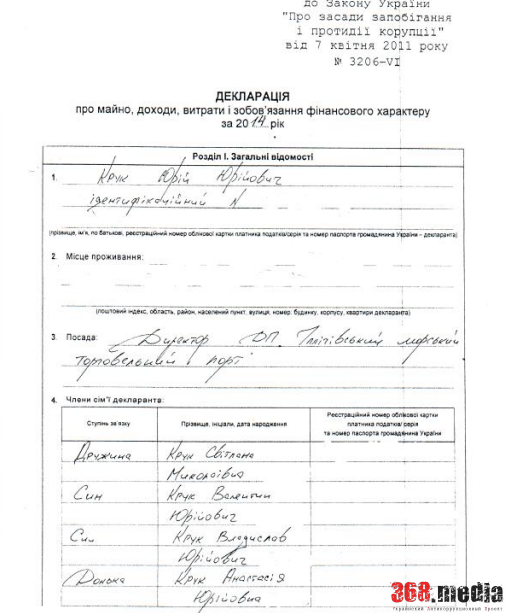 до Закону України
"Про засади запобігання
і протидії корупції"
від 7 квітня 2011 року
№ 3206-VI
ДЕКЛАРАЦІЯ
про майно, доходи, витрати і зобов'язання фінансового характеру
за 2014 рік
Розділ I. Загальні відомості
1. Крук Юрій Юрійович
ідентифікаційний N
(прізвище, ім'я, по батькові, реєстраційний номер облікової картки платника податків/серія та номер паспорта громадянина України - декларанта)
2. Місце проживання:
(поштовий індекс, область, район, населений пункт, вулиця, номер: будинку, корпусу, квартири декларанта)
3. Посада: Директор ДП. Іллічівський морський
торговельний порт
4. Члени сім'ї декларанта:
Ступінь зв'язку
Прізвище, ініціали, дата народження
Реєстраційний номер облікової картки
платника податків/серія
та номер паспорта громадянина України
Дружина Крук Світлана
Миколаївна
Син Крук Валентин
Юрійович
Син Крук Владислав
Юрійович
Донька Крук Анастасія
Юріївна
368.media
Український Антикорупційний Проект